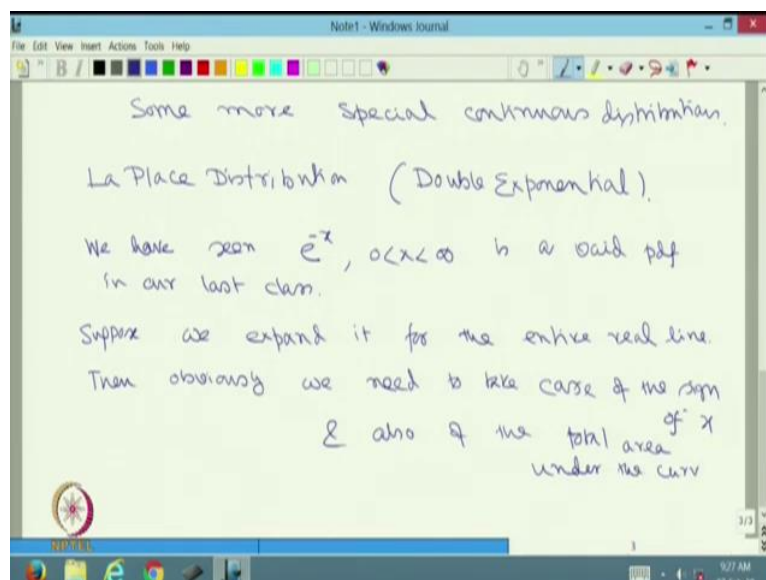 Note1 - Windows Journal
File Edit View Insert Actions Tools Help
Some more special continuous distributions.
La Place Distribution (Double Exponential).
We have seen e^-x, 0<x<∞ is a valid pdf
in our last class.
Suppose we expand it for the entire real line.
Then obviously we need to take care of the sign
of x
& also of the total area
under the curv
NPTEL
3/3
3
9:27 AM